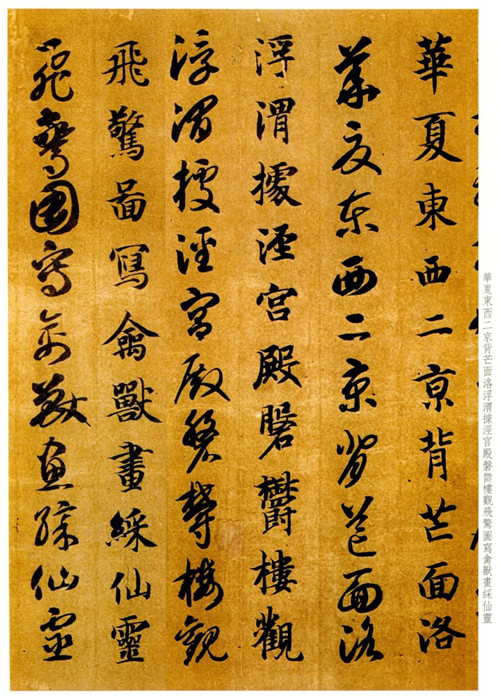 華夏東西二亰背芒面洛
華夏東西二京背芒面洛
浮渭據涇宮殿磐鬱樓觀
浮渭據涇宮殿磐鬱樓觀
飛驚啚冩禽獸畫綵仙靈
飛驚圖寫禽獸畫綵仙靈
華夏東西二京背芒面洛浮渭據涇宮殿磐鬱樓觀飛驚圖寫禽獸畫綵仙靈